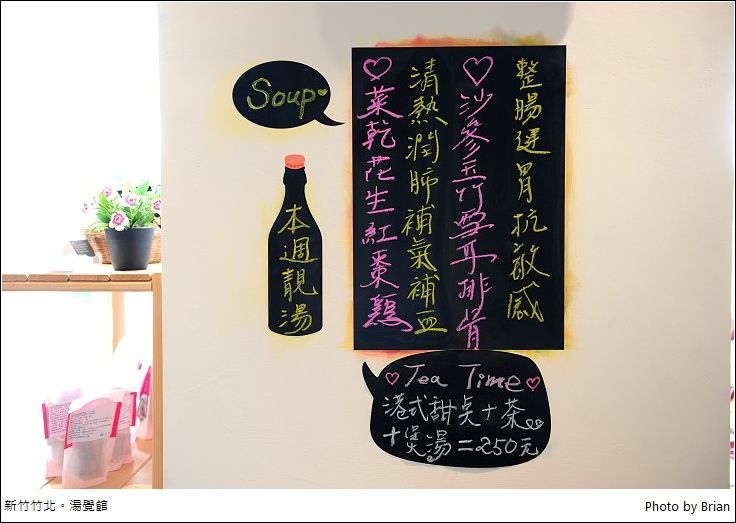 Soup
本週靚湯
整腸健胃抗敏感
♡沙參玉竹雪耳排骨
清熱潤肺補氣補血
♡菜乾花生紅棗雞
♡Tea Time♡
港式甜点+茶
+煲湯=250元
新竹竹北。湯覺館
Photo by Brian